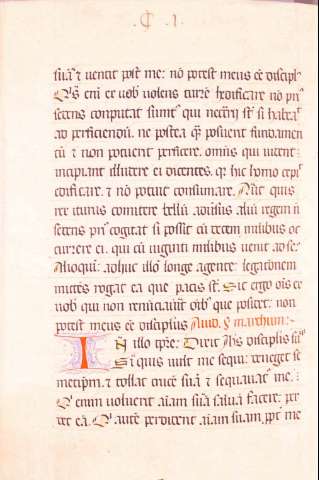 · C · I ·
suā ⁊ uenit post me: nō potest meus eē discipl᷒
Q̇s eni ex uob uolens turrē hedificare nō pri᷒
sedens conputat sumt᷒ qui nec̄rij st̄ si habeat
ad perficiendū. ne postea q̄ posuerit fundamen
tū ⁊ non potuerit perficere. omnis qui uident
incipiant illudere ei dicentes. q̄r hic homo cepit
edificare. ⁊ nō potuit consumare. Aut quis
rex iturus comitere bellū aduersus aliū regem n̄
sedens pri᷒ cogitat si possit cū decem milibus oc
currere ei. qui cū uiginti milibus uenit ad se:
Alioqui: adhuc illo longe agente: legationem
mittēs rogat ea que pacis st̄. Sic ergo oīs ex
uob qui non renunciauit oīb᷒ que posidet: non
potest meus eē discipulus Aliud. S marchum:-
IN illo tpr̄e: Dixit ihs discipulis suis
Si quis uult me sequi: deneget se
metipm̄. ⁊ tollat crucē suā ⁊ sequatur me.
Q̇ enim uoluerit aiam suā saluā facere: per
det eā. Q̇ autē perdiderit aiam suam. ppt̄ me